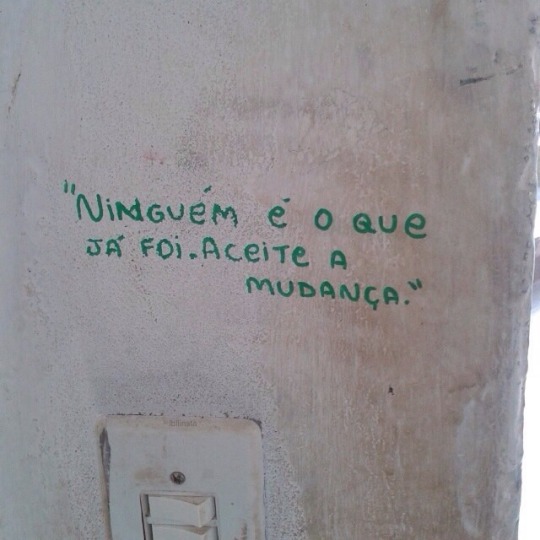 "NINGUÉM É O QUE
JÁ FOI. ACEITE A
MUDANÇA."